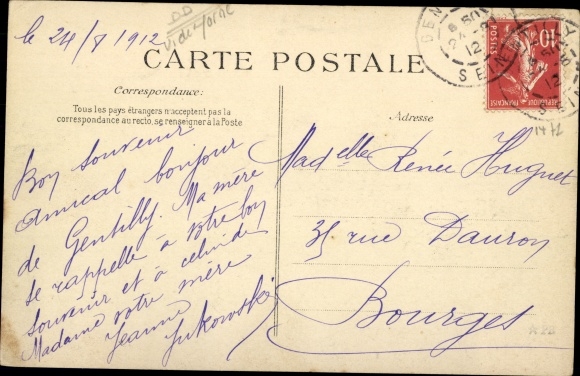 le 24/8 1912
CARTE POSTALE
Correspondance:
Tous les pays étrangers n'acceptent pas la
correspondance au recto, se renseigner à la Poste
Bon souvenir
Amical bonjour
de Gentilly. Ma mère
se rappelle à votre bon
souvenir et à celui de
Madame votre mère
Jeanne
Jukowski
Adresse
Madelle Renée Huguet
35 rue Dauron
Bourges
10
POSTES
REPUBLIQUE FRANÇAISE
GENTILLY
SEINE
12